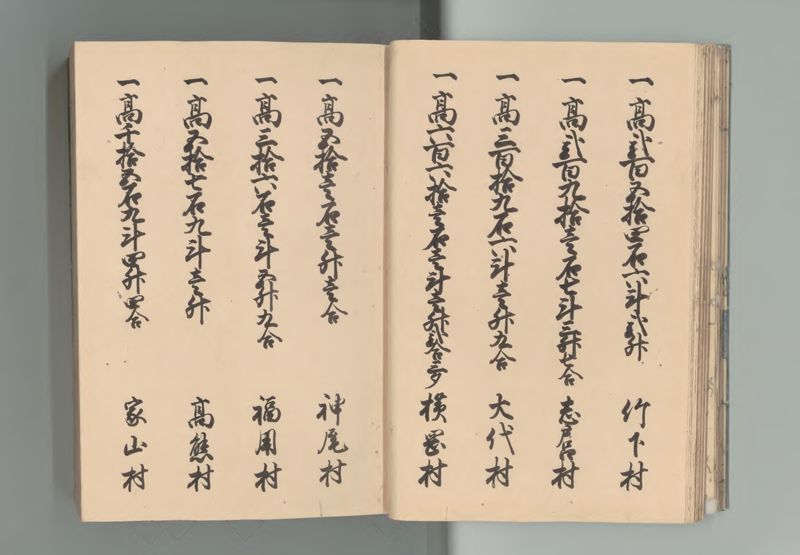 一 高弐百五拾四石六斗弐升 竹下村
一 高弐百九拾壱石七斗三升七合 志戸呂村
一 高三百拾九石六斗壱升九合 大代村
一 高六百六拾壱石壱斗壱升弐合三夕 横岡村
一 高五拾壱石壱升壱合 神尾村
一 高三拾六石壱斗五升九合 福用村
一 高五拾七石九斗壱升 高熊村
一 高千拾五石九斗四升四合 家山村